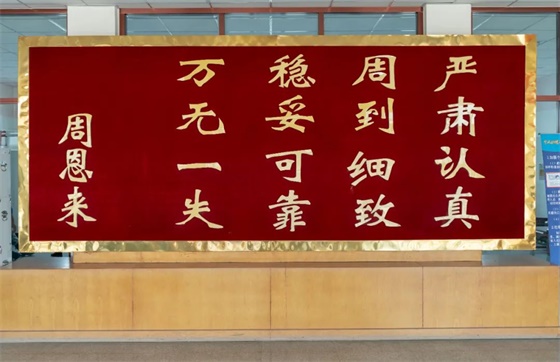 严肃认真
周到细致
稳妥可靠
万无一失
周恩来